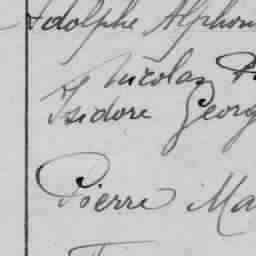 Adolphe Alphon
Nicolas
Isidore Georg
Pierre Ma